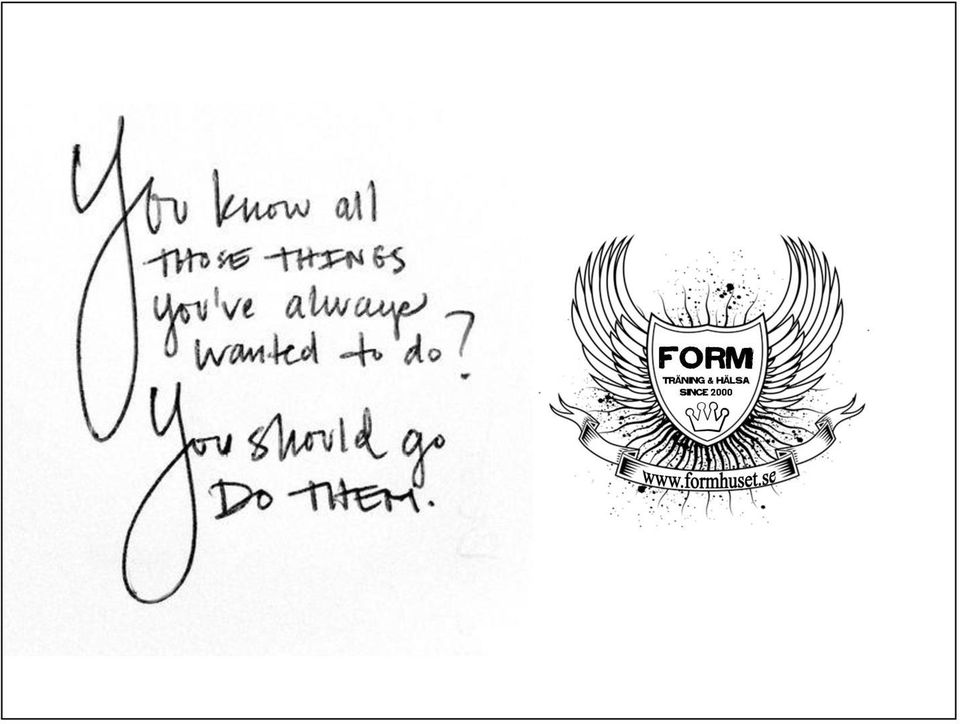 You know all
THOSE THINGS
you've always
wanted to do?
You should go
DO THEM.
FORM
TRÄNING & HÄLSA
SINCE 2000
www.formhuset.se